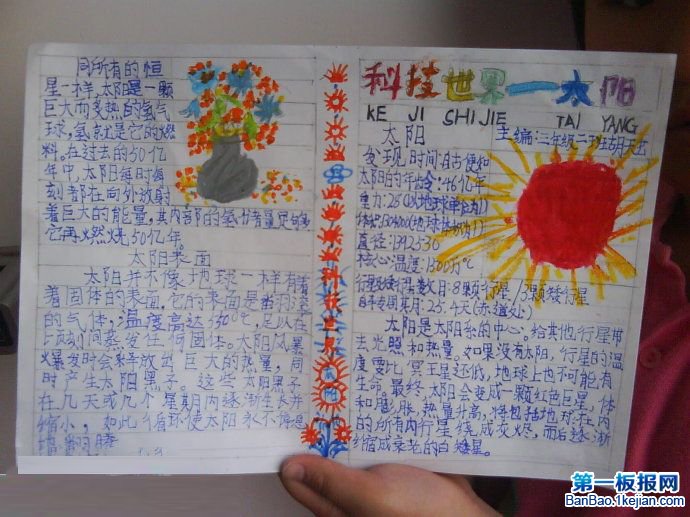 同所有的恒
星一样,太阳是一颗
巨大而多热的氢气
球,氢就是它的燃
料。在过去的50亿
年中,太阳每时每
刻都在向外放射
着巨大的能量,其内部的氢
它再燃烧50亿年。
太阳表面
太阳并不像地球一样有着
着固体的表面,它的表面是
的气体,温度高达
发任何固体。太阳风暴
爆发时会释放出巨大的热量,同
时产生太阳黑子。这些太阳黑子
在几天或几个星期内逐渐生长并
缩小,如此循环使太阳永不停息
翻腾
科技世界一太阳
KE JI SHI JIE TAI YANG
太阳 主编:三年级二班胡天
发现时间:自古便知
太阳的年龄:46亿年
重力:28(以地球单位为1)
体积:1304000(地球体积为1)
直径:1392530
核心温度:1500万℃
行星数 数目:8颗行星/3颗矮行星
自平 周期:25.4天(赤道处)
太阳是太阳系的中心。给其他行星带
去光照和热量。如果没有太阳,行星的温
度要比冥王星还低,地球上也不可能有
生命。最终,太阳会变成一颗红色巨星,体
积膨胀,热量升高,将包括地球在内
的所有内行星烧成灰烬,而后逐渐
缩成衰老的白矮星。
科技世界
第一板报网
BanBao.1kejian.com